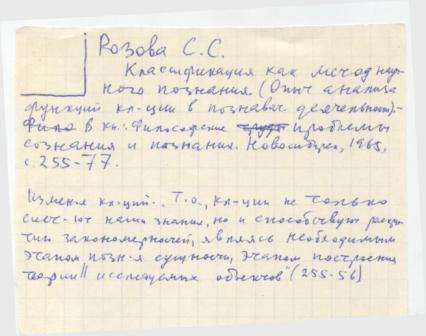 Розова С.С.
Классификация как метод науч-
ного познания (Опыт анализа
функций кл-ции в познават. деятельности).-
В кн.: Философские проблемы
сознания и познания. Новосибирск, 1965,
с. 255-77.
кл-ций. "Т.о., кл-ции не только
сист-ют наши знания, но и способствуют раскры-
тию закономерностей, являясь необходимым
этапом позн-я сущности, этапом построения
теории исследуемых объектов" (255-56)